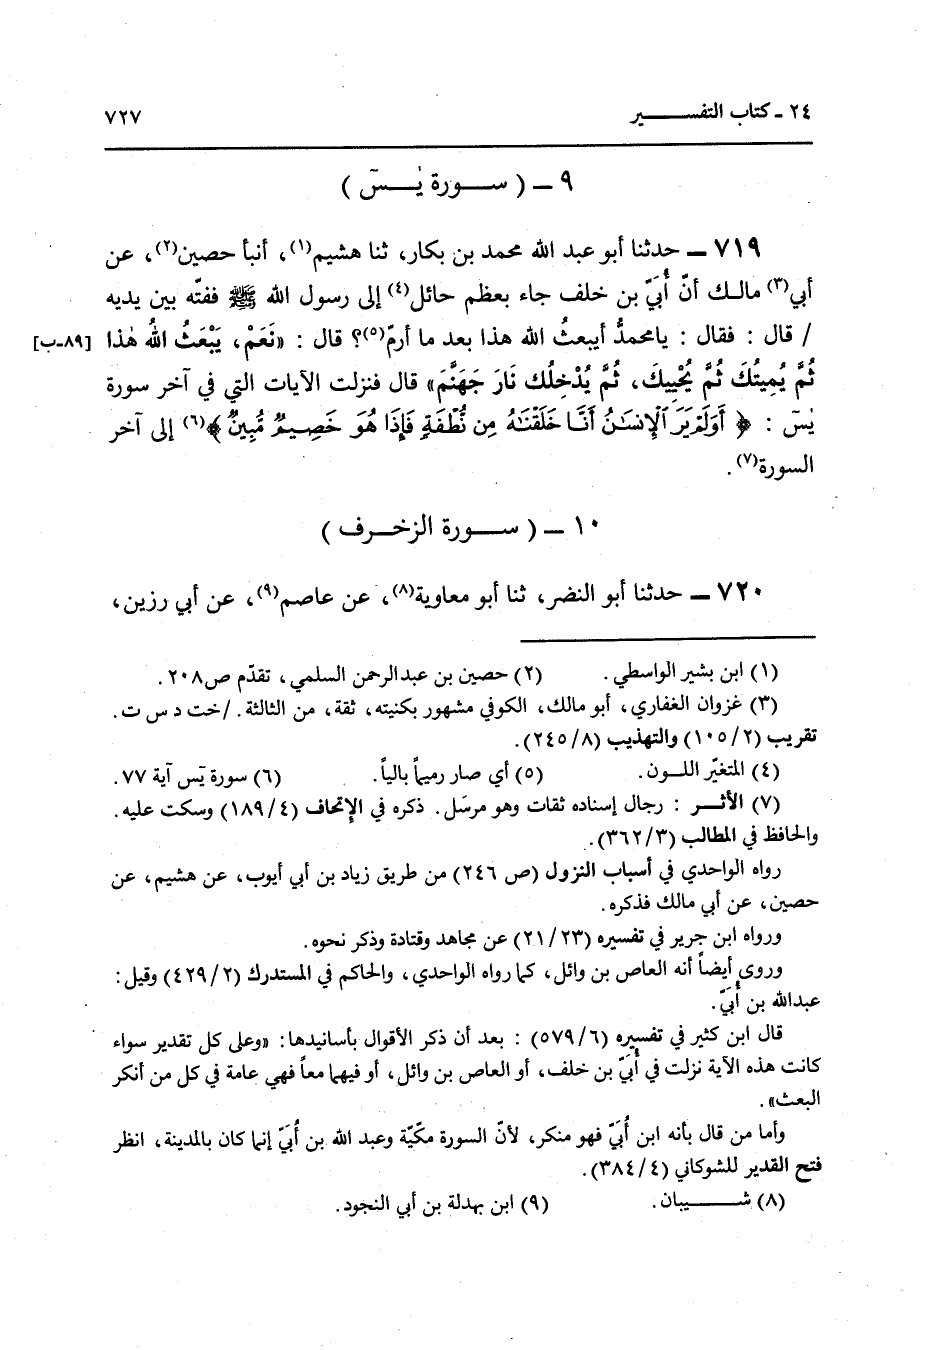 ٢٤ ـ كتاب التفســـــير ٧٢٧
٩ ــ ( ســـورة يٰـــسٓ )
٧١٩ ــ حدثنا أبو عبد الله محمد بن بكار، ثنا هشيم(١)، أنبأ حصين(٢)، عن
أبي(٣) مالـك أنّ أُبَيّ بن خلف جاء بعظم حائل(٤) إلى رسول الله ﷺ ففتّه بين يديه
/ قال : فقال : يامحمدُ أيبعثُ الله هذا بعد ما أرمّ(٥)؟ قال : «نَعَمْ، يَبْعَثُ اللهُ هٰذا [٨٩-ب]
ثُمَّ يُمِيتُكَ ثُمَّ يُحْيِيكَ، ثُمَّ يُدْخِلُك نَارَ جَهَنَّمَ» قال فنزلت الآيات التي في آخر سورة
يٰسٓ : ﴿ أَوَلَمْ يَرَ ٱلْإِنسَٰنُ أَنَّا خَلَقْنَٰهُ مِن نُّطْفَةٍ فَإِذَا هُوَ خَصِيمٌ مُّبِينٌ ﴾(٦) إلى آخر
السورة(٧).
١٠ ــ ( ســـورة الزخـرف )
٧٢٠ ــ حدثنا أبو النضر، ثنا أبو معاوية(٨)، عن عاصم(٩)، عن أبي رزين،
(١) ابن بشير الواسطي. (٢) حصين بن عبدالرحمن السلمي، تقدّم ص٢٠٨.
(٣) غزوان الغفاري، أبو مالك، الكوفي مشهور بكنيته، ثقة، من الثالثة. /خت د س ت.
تقريب (١٠٥/٢) والتهذيب (٢٤٥/٨).
(٤) المتغيّر اللـون. (٥) أي صار رميماً بالياً. (٦) سورة يٓس آية ٧٧.
(٧) الأثـر : رجال إسناده ثقات وهو مرسَل. ذكره في الإتحاف (١٨٩/٤) وسكت عليه.
والحافظ في المطالب (٣٦٢/٣).
رواه الواحدي في أسباب النزول (ص ٢٤٦) من طريق زياد بن أبي أيوب، عن هشيم، عن
حصين، عن أبي مالك فذكره.
ورواه ابن جرير في تفسيره (٢١/٢٣) عن مجاهد وقتادة وذكر نحوه.
وروي أيضاً أنه العاص بن وائل، كما رواه الواحدي، والحاكم في المستدرك (٤٢٩/٢) وقيل:
عبدالله بن أُبَيّ.
قال ابن كثير في تفسيره (٥٧٩/٦) : بعد أن ذكر الأقوال بأسانيدها: «وعلى كل تقدير سواء
كانت هذه الآية نزلت في أُبيّ بن خلف، أو العاص بن وائل، أو فيهما معاً فهي عامة في كل من أنكر
البعث».
وأما من قال بأنه ابن أُبَيّ فهو منكر، لأنّ السورة مكيّة وعبد الله بن أُبَيّ إنما كان بالمدينة، انظر
فتح القدير للشوكاني (٣٨٤/٤).
(٨) شـــــيبان. (٩) ابن بهدلة بن أبي النجود.